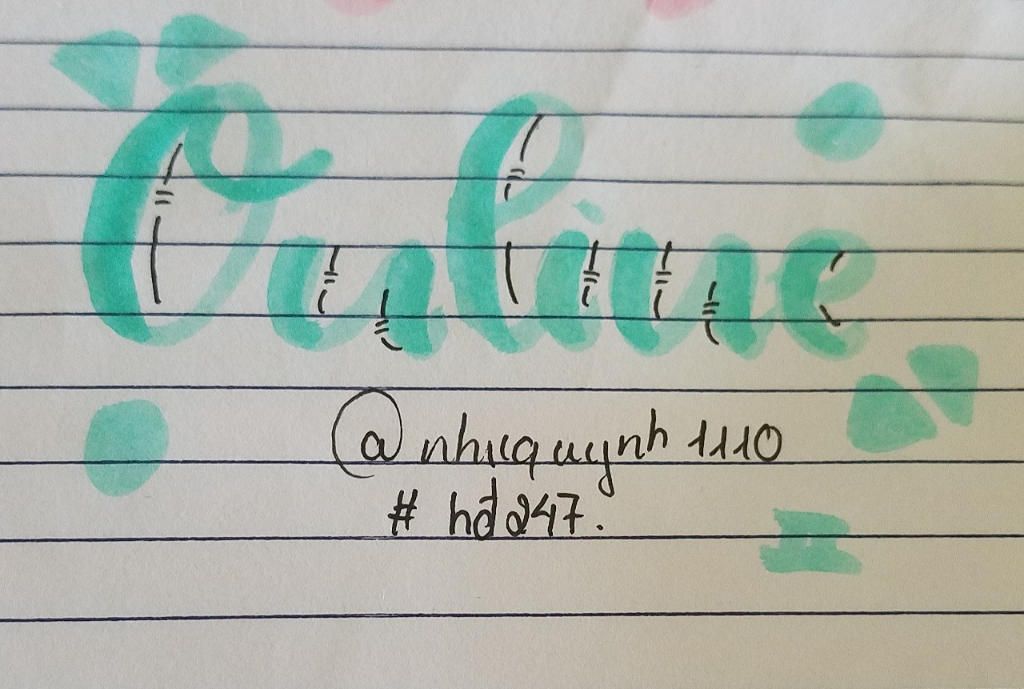 Online
@nhuquynh1110
# hđ247.